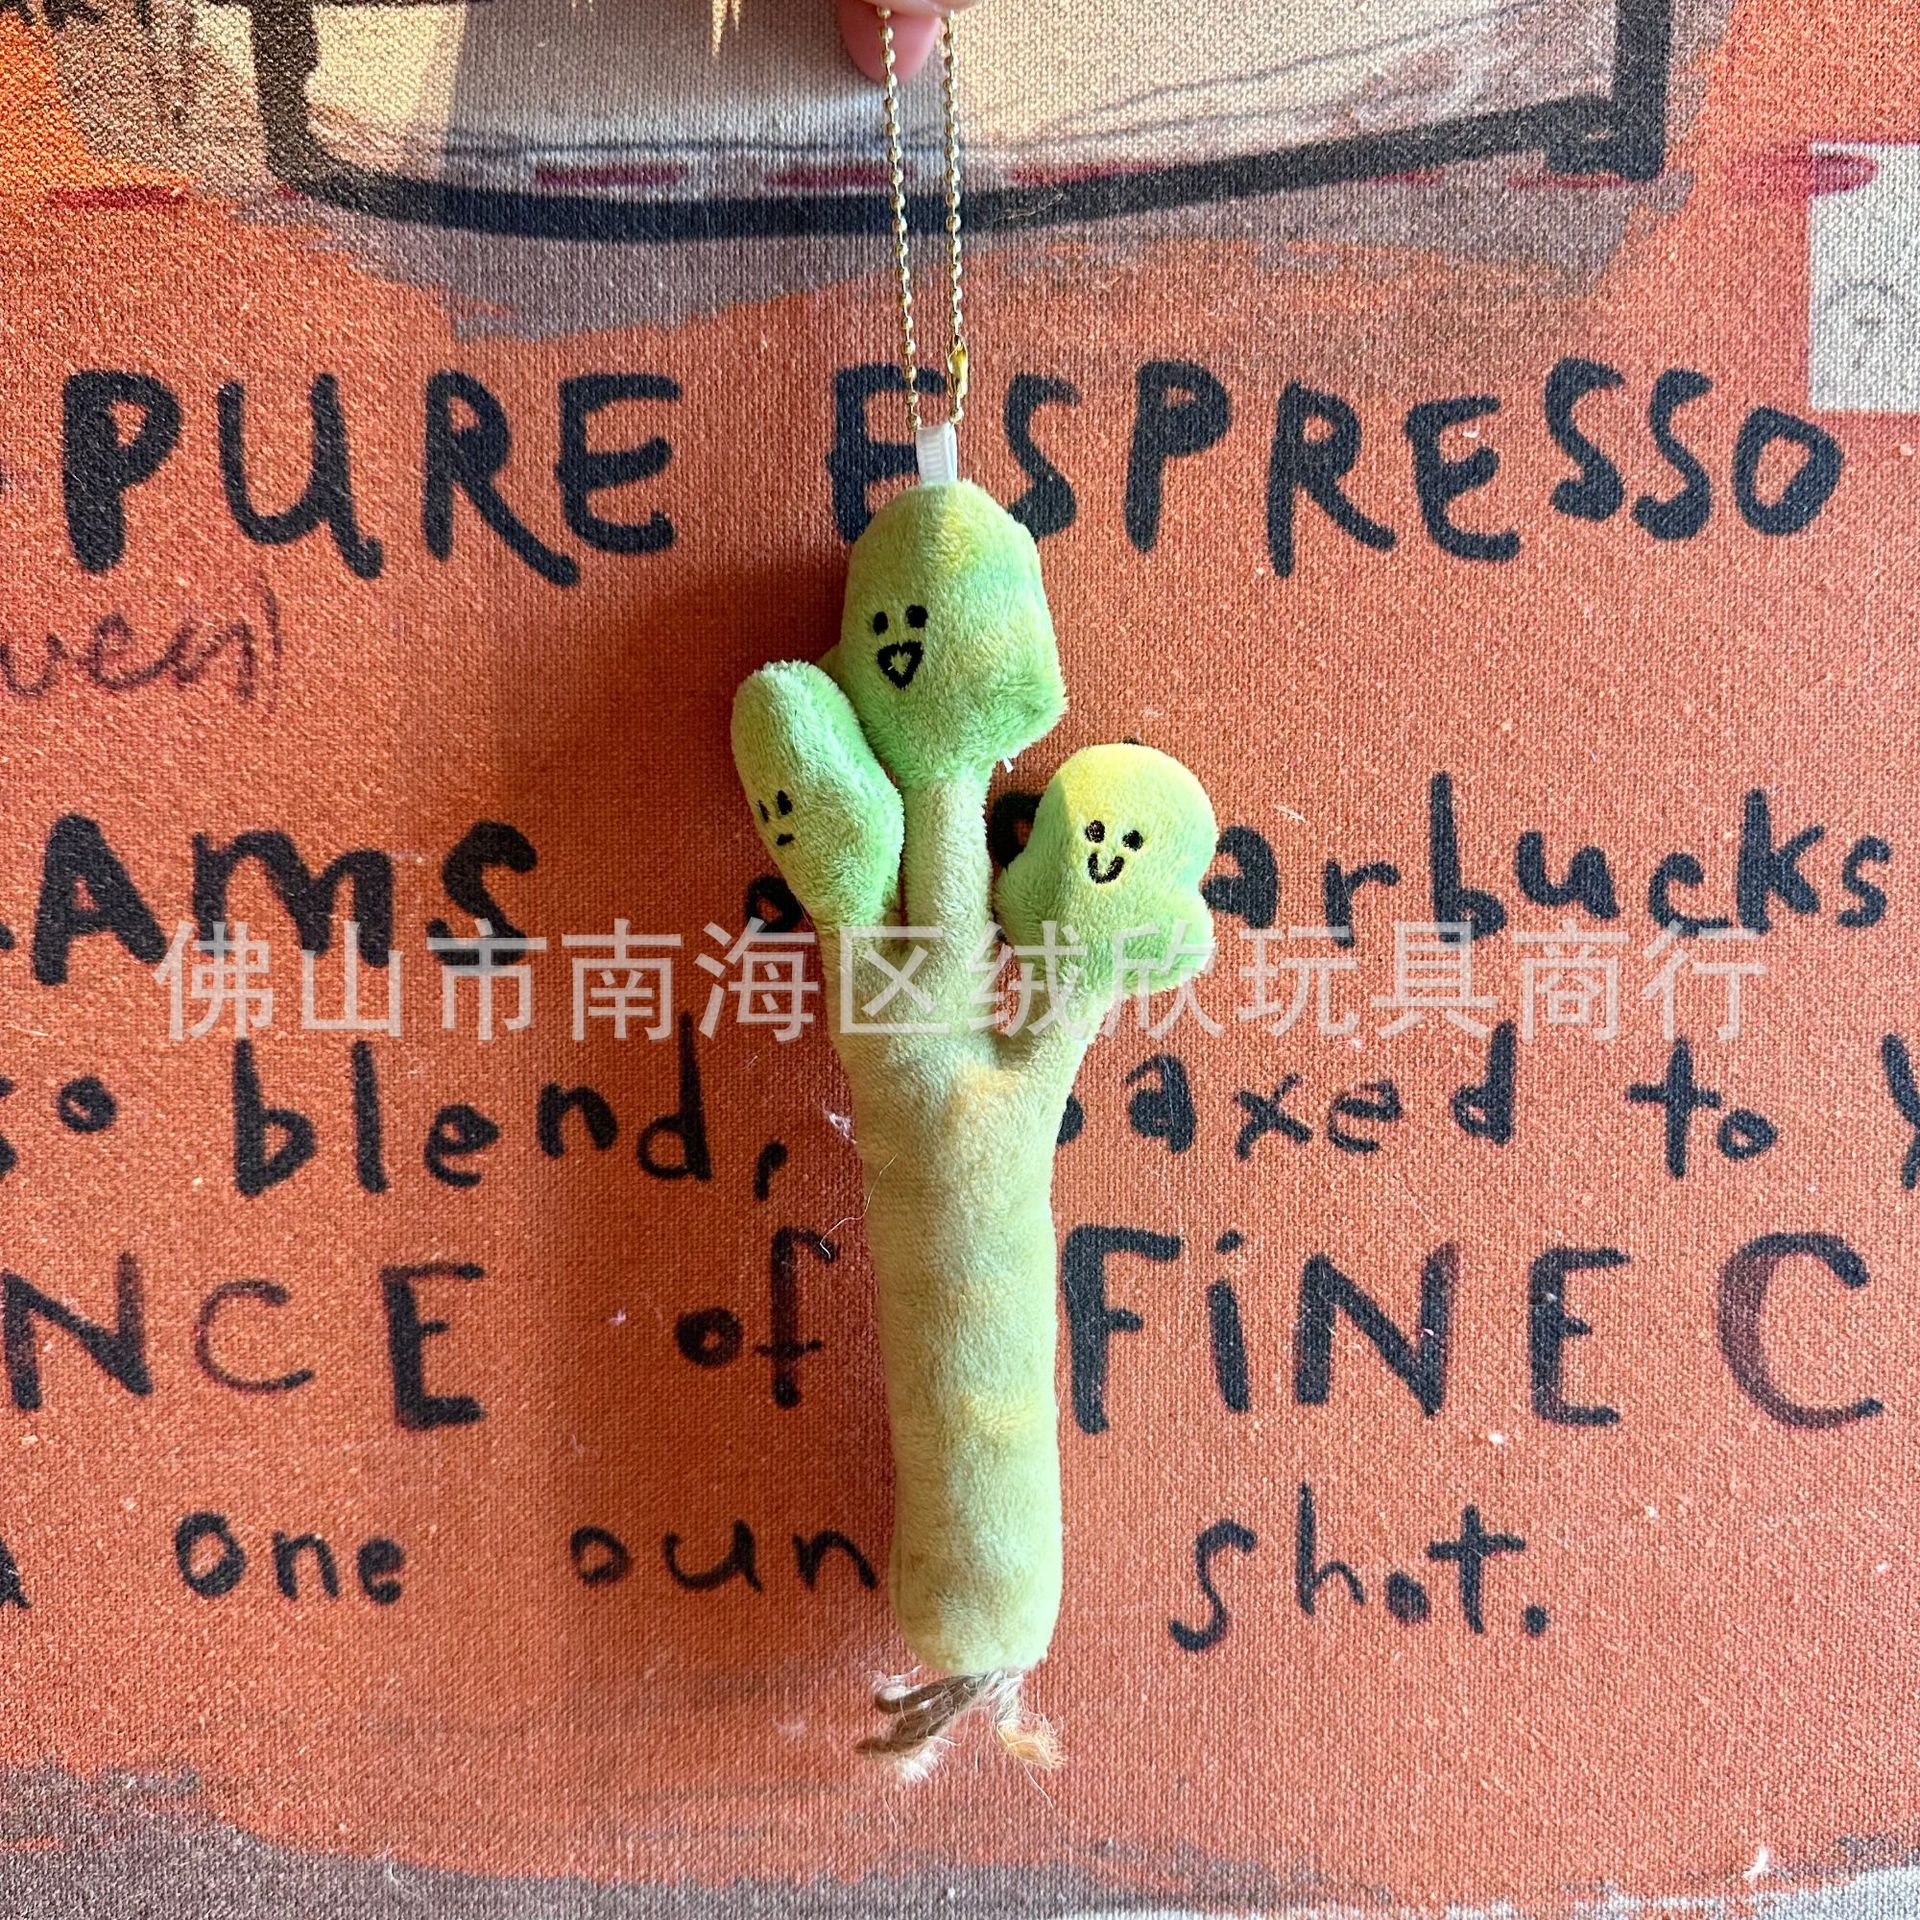 PURE ESPRESSO
AMS
arbucks
佛山市南海区绒欣玩具商行
so blend, oaxed to Y
NCE of FiNE C
one oun shot.